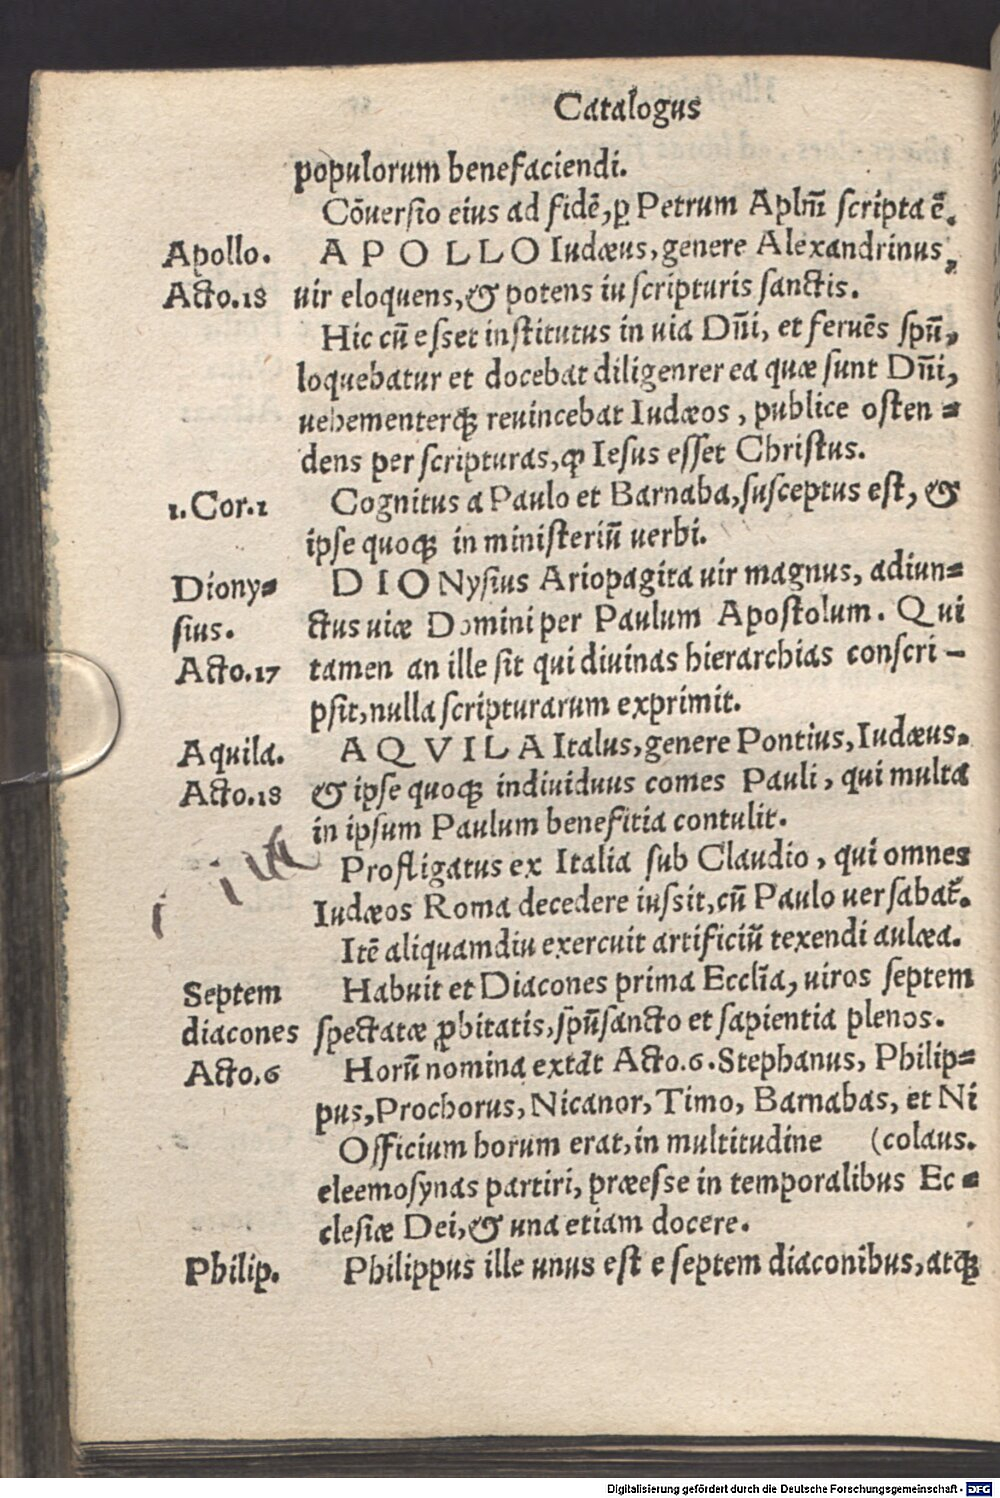 Catalogus
populorum benefaciendi.
Cōuersio eius ad fidē, ꝑ Petrum Aplm̄ scripta ē.
Apollo.
APOLLO Iudæus, genere Alexandrinus,
Acto.18
uir eloquens, & potens iu scripturis sanctis.
Hic cū esset institutus in uia Dn̄i, et feruēs spū,
loquebatur et docebat diligenrer ea quæ sunt Dn̄i,
uehementerq́; reuincebat Iudæos, publice osten=
dens per scripturas, ꝙ Iesus esset Christus.
1.Cor.1
Cognitus a Paulo et Barnaba, susceptus est, &
ipse quoq; in ministeriū uerbi.
Diony=
DIONysius Ariopagita uir magnus, adiun=
sius.
ctus uiæ Domini per Paulum Apostolum. Qui
Acto.17
tamen an ille sit qui diuinas hierarchias conscri-
psit, nulla scripturarum exprimit.
Aquila.
AQVILA Italus, genere Pontius, Iudæus.
Acto.18
& ipse quoq; indiuiduus comes Pauli, qui multa
in ipsum Paulum benefitia contulit.
Profligatus ex Italia sub Claudio, qui omnes
Iudæos Roma decedere iussit, cū Paulo uersabat̄.
Itē aliquamdiu exercuit artificiū texendi aulæa.
Septem
Habuit et Diacones prima Eccl̄ia, uiros septem
diacones
spectatæ ꝓbitatis, spūsancto et sapientia plenos.
Acto.6
Horū nomina extāt Acto.6. Stephanus, Philip=
pus, Prochorus, Nicanor, Timo, Barnabas, et Ni
Officium horum erat, in multitudine (colaus.
eleemosynas partiri, præesse in temporalibus Ec=
clesiæ Dei, & una etiam docere.
Philip.
Philippus ille unus est e septem diaconibus, atq́;
Digitalisierung gefördert durch die Deutsche Forschungsgemeinschaft - DFG